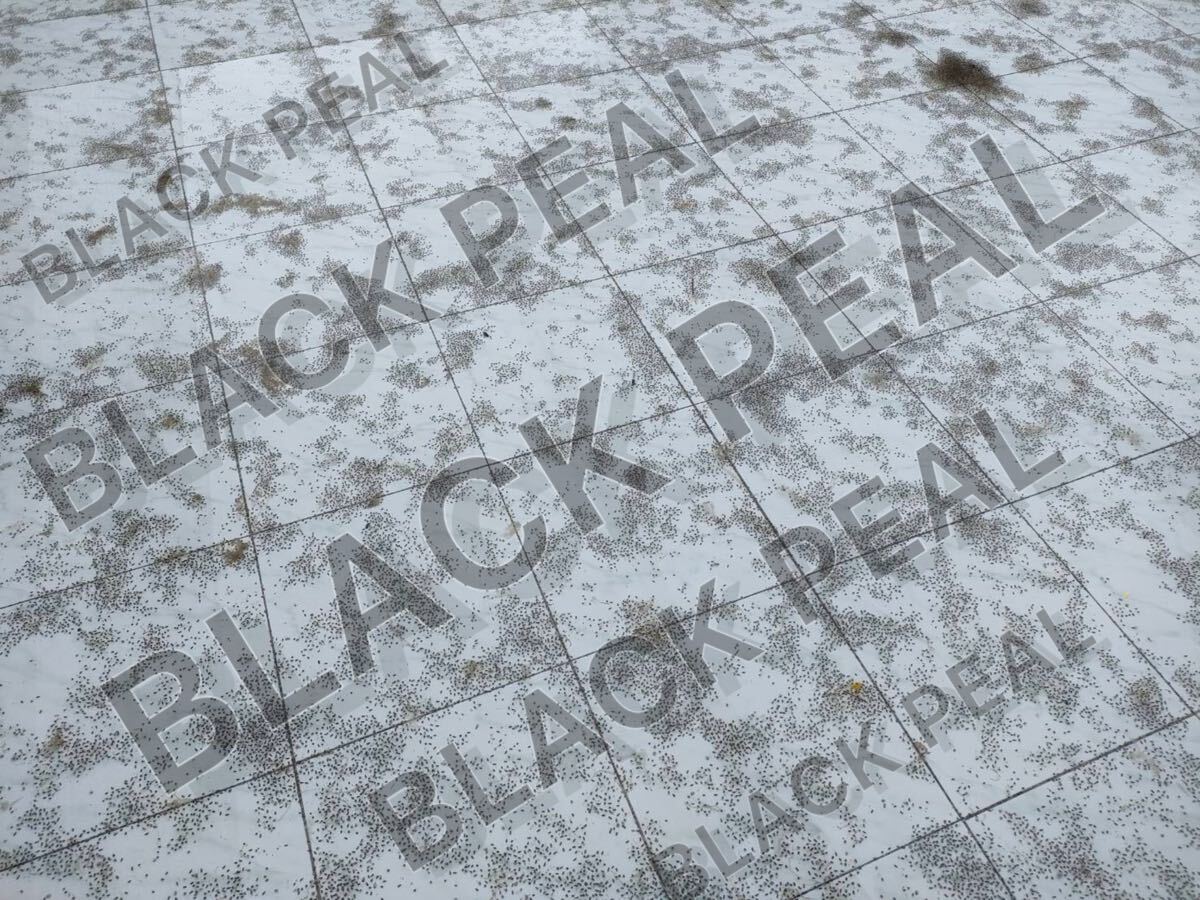 BLACK PEAL
BLACK PEAL
BLACK PEAL
BLACK PEAL
BLACK PEAL